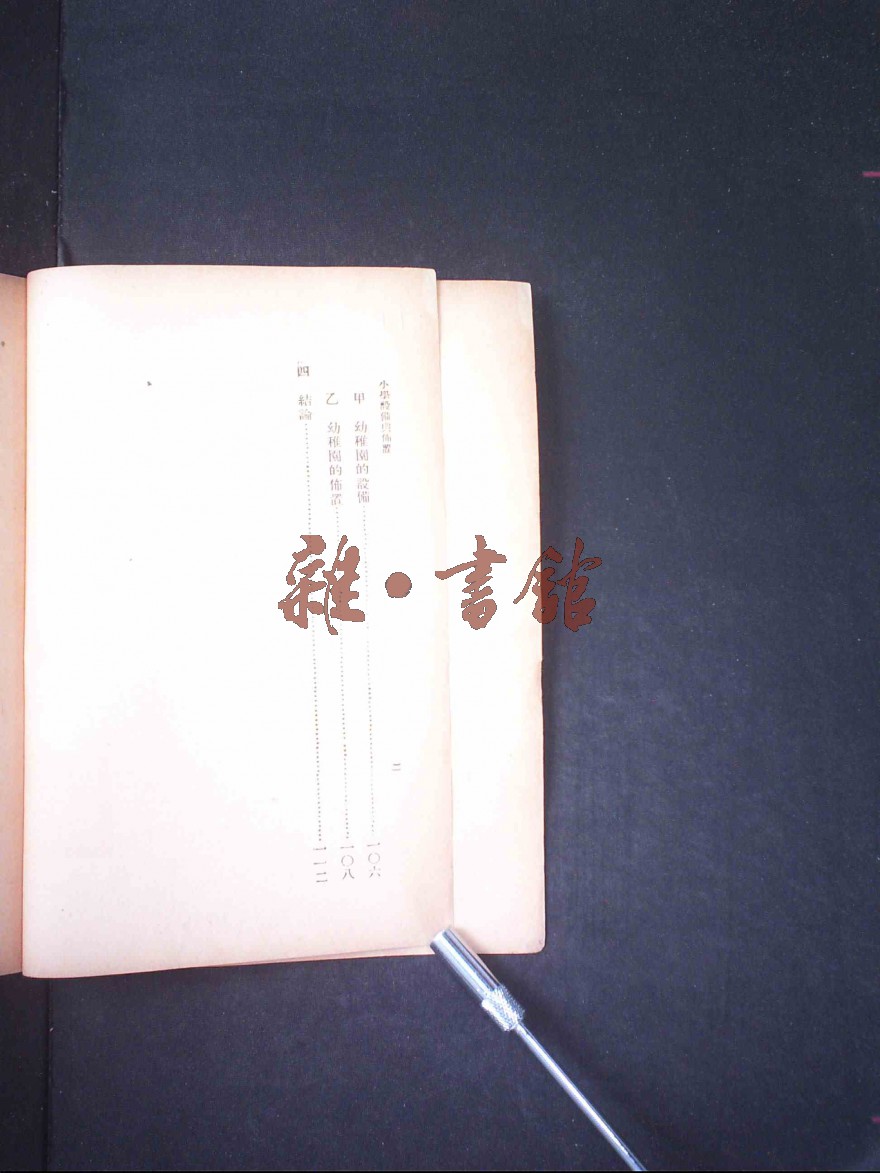 小學設備與佈置
二
甲　幼稚園的設備……一〇六
乙　幼稚園的佈置……一〇八
四　結論……一一二
雜•書館